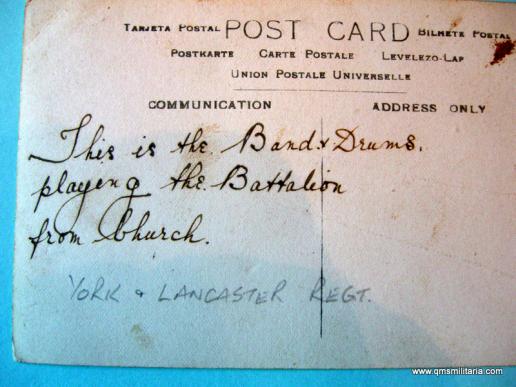 TARJETA POSTAL POST CARD BILHETE POSTAL
POSTKARTE CARTE POSTALE LEVELEZO-LAP
UNION POSTALE UNIVERSELLE
COMMUNICATION ADDRESS ONLY
This is the Band & Drums.
playeng the Battalion
from Church.
YORK & LANCASTER REGT.
www.qmsmilitaria.com